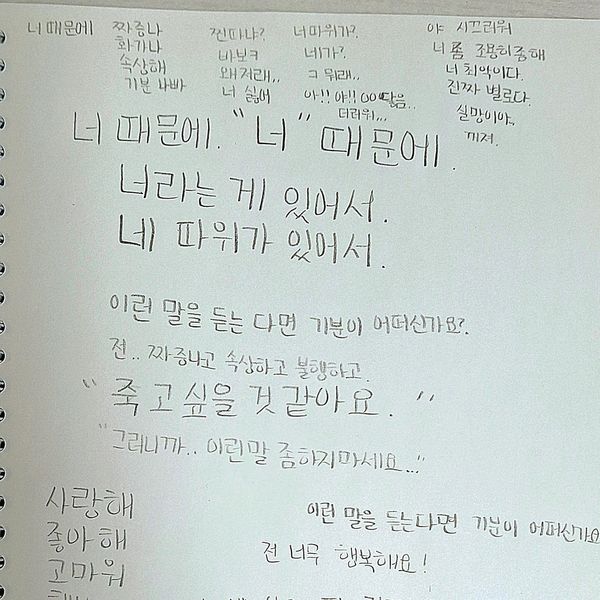 너 때문에
짜증나
화가나
속상해
기분 나빠
찐따냐?
바보ㅋ
왜저래,,
너 싫어
너따위가?
네가?
그 뭐래..
아!! 야!! OO닮음..
더러워,,,
야 시끄러워
너 좀 조용히좀해
너 최악이다.
진짜 별로다.
실망이야.
꺼져.
너 때문에. "너" 때문에.
너라는 게 있어서.
네 따위가 있어서.
이런 말을 듣는다면 기분이 어떠신가요?
전.. 짜증나고 속상하고 불행하고.
"죽고싶을것같아요."
"그러니까.. 이런말 좀하지마세요..."
사랑해
좋아해
고마워
이런 말을 듣는다면 기분이 어떠신가요
전 너무 행복해요!